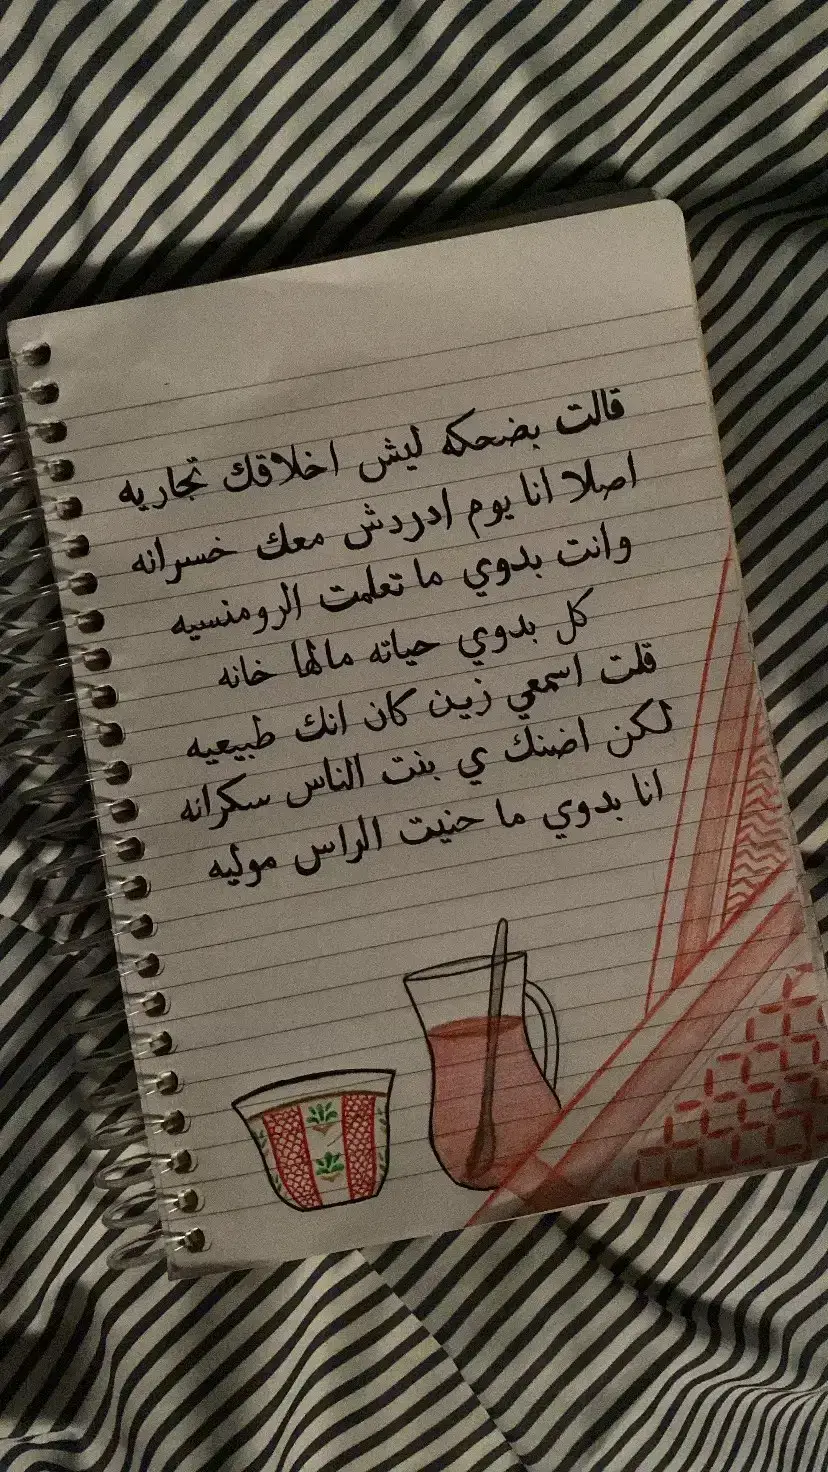 قالت بضحكه ليش اخلاقك تجاريه
اصلا انا يوم ادردش معك خسرانه
وانت بدوي ما تعلمت الرومنسيه
كل بدوي حياته مالها خانه
قلت اسمعي زين كان انك طبيعيه
لكن اضنك ي بنت الناس سكرانه
انا بدوي ما حنيت الراس موليه